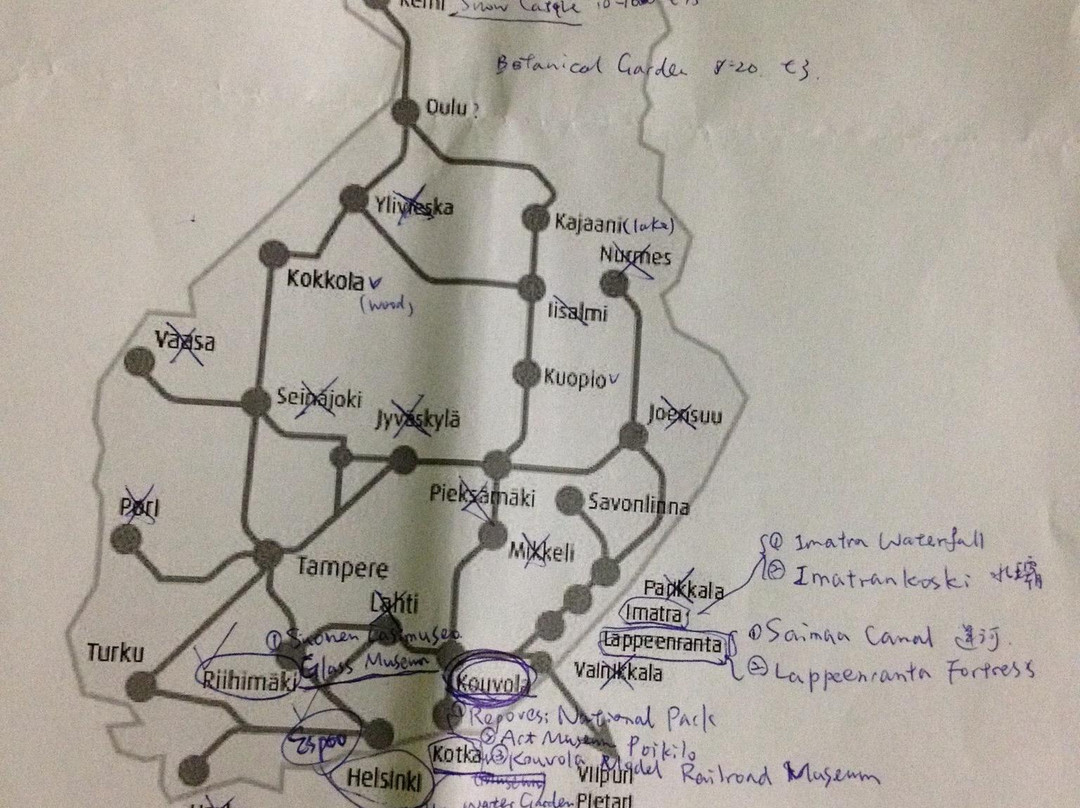 Kemi Snow Castle
Botanical Garden 8-20. €3.
Oulu ?
Ylivieska
Kajaani (lake)
Nurmes
Kokkola ✓
(wood)
Iisalmi
Vaasa
Kuopio ✓
Seinäjoki
Jyväskylä
Joensuu
Pieksämäki
Savonlinna
Pori
Mikkeli
① Imatra Waterfall
Tampere
② Imatrankoski
Parikkala
Lahti
Imatra
① Suomen Lasimuseo
① Saimaa Canal 运河.
Lappeenranta
Turku
Glass Museum
② Lappeenranta Fortress
Riihimäki
Kouvola
Vainikkala
① Repovesi National Park
Espoo
② Art Museum Poikilo
Kotka
③ Kouvola Model Railroad Museum
Helsinki
Viipuri
Water Garden
Pietari